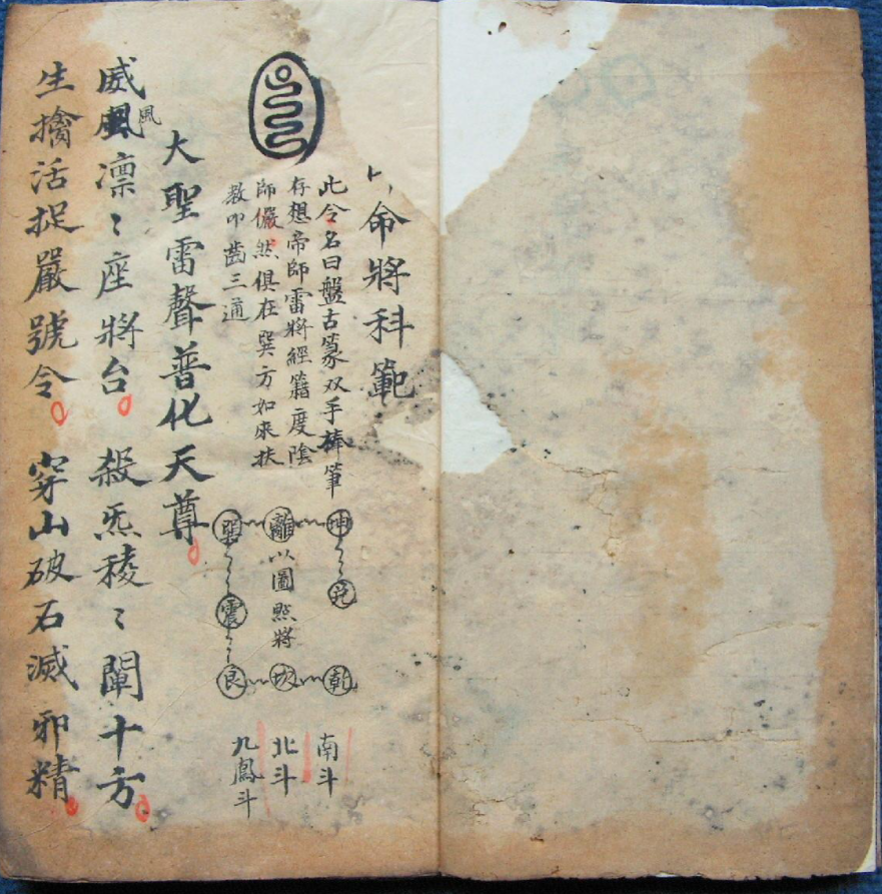 命將科範
此令名曰盤古篆双手捧筆
存想帝師雷將經籍度陰
師儼然俱在巽方如來扶
教叩齒三通
坤 兌
離 以圖照將
巽 震 艮
坎
乾
南斗
北斗
九鳳斗
大聖雷聲普化天尊
威風凛〻座將台 殺炁稜〻闡十方
風
生擒活捉嚴號令 穿山破石滅邪精